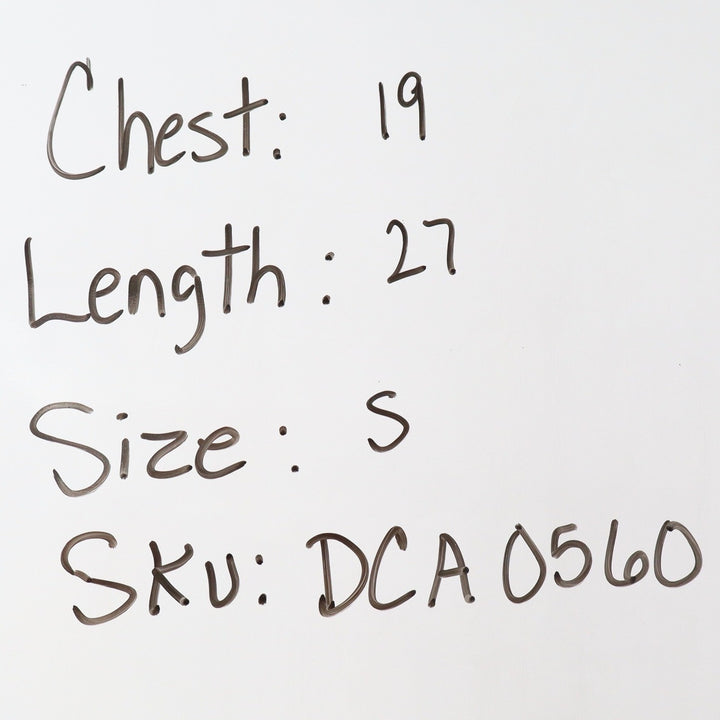 Chest: 19
Length: 27
Size: S
SKU: DCA 0560